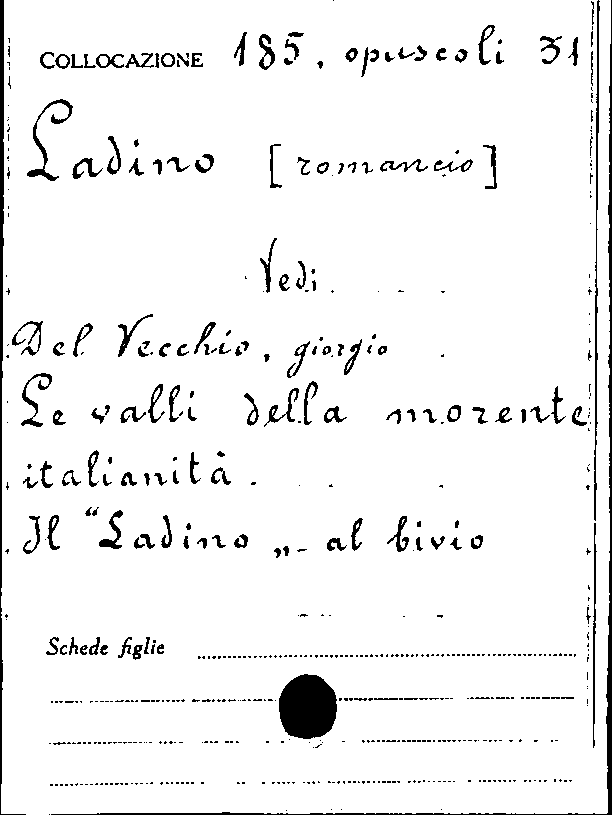 COLLOCAZIONE 185, opuscoli 31
Ladino [romancio]
Vedi
Del Vecchio, giorgio
Le valli della morente
italianità.
Il "Ladino„ al bivio
Schede figlie